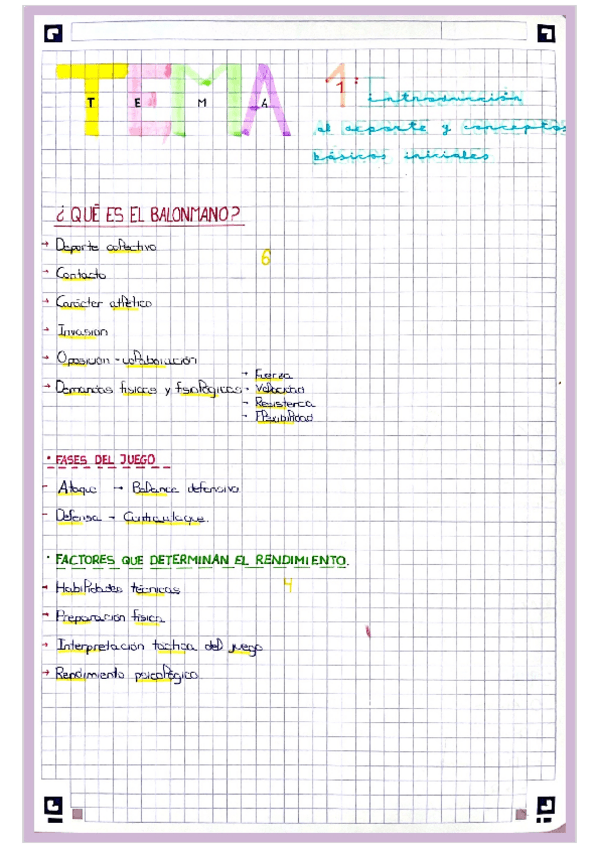 TEMA 1: introducción
T E M A
al deporte y conceptos
básicos iniciales
¿QUÉ ES EL BALONMANO?
→ Deporte colectivo
6
→ Contacto
→ Carácter atlético
→ Invasión
→ Oposición - colaboración
→ Fuerza
→ Demandas físicas y fisiológicas - Velocidad
→ Resistencia
→ Flexibilidad
• FASES DEL JUEGO
- Ataque → Balance defensivo
- Defensa → Contraataque.
• FACTORES QUE DETERMINAN EL RENDIMIENTO.
→ Habilidades técnicas 4
→ Preparación física
→ Interpretación táctica del juego
→ Rendimiento psicológico